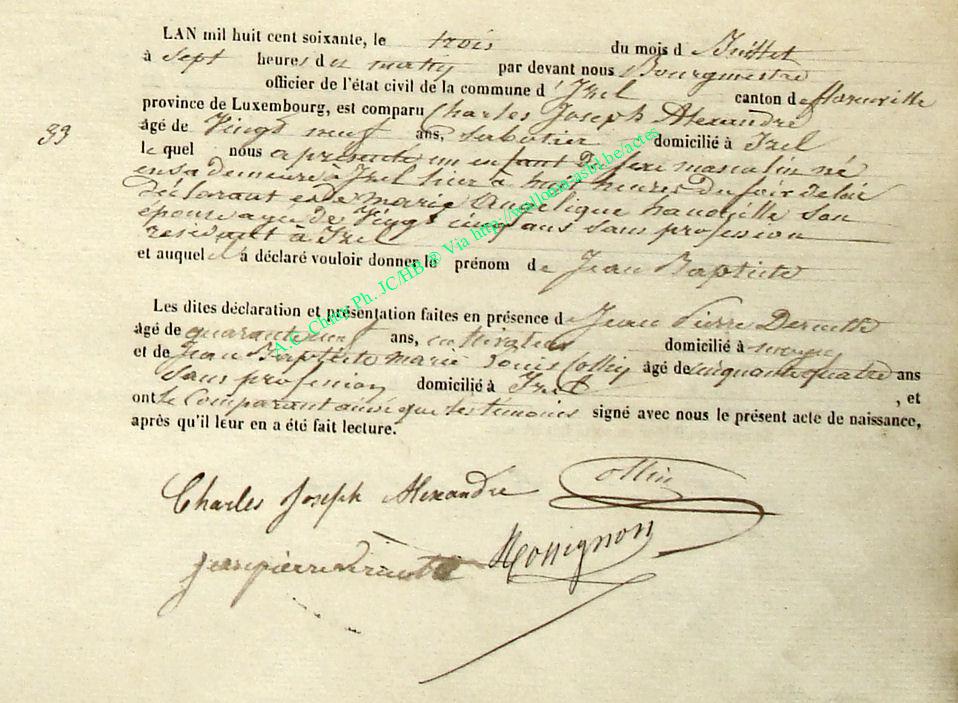 LAN mil huit cent soixante, le trois du mois d Juillet
à Sept heures du matin par devant nous Bourgmestre
officier de l'état civil de la commune d'Izel canton de florenville
province de Luxembourg, est comparu Charles Joseph Alexandre
33
âgé de Vingt neuf ans, Sabotier domicilié à Izel
le quel nous a présenté un enfant de sexe masculin né
en sa demeure à Izel hier à huit heures du soir de lui
déclarant et de marie Angelique hanoville Son
épouse agée de Vingt cinq ans sans profession
résidant à Izel
et auquel il à déclaré vouloir donner le prénom de Jean Baptiste
Les dites déclaration et présentation faites en présence d Jean Pierre
âgé de quarante ans, cultivateur domicilié à moyen
et de Jean Baptiste marie Louis Collin âgé de cinquante quatre ans
Sans profession domicilié à Izel , et
ont le Comparant ainsi que les témoins signé avec nous le présent acte de naissance,
après qu'il leur en a été fait lecture.
Charles Joseph Alexandre Collin
jean pierre Rossignon
A.E. Chiny Ph. JC/HB @ Via http://wallonia-asbl.be/actes